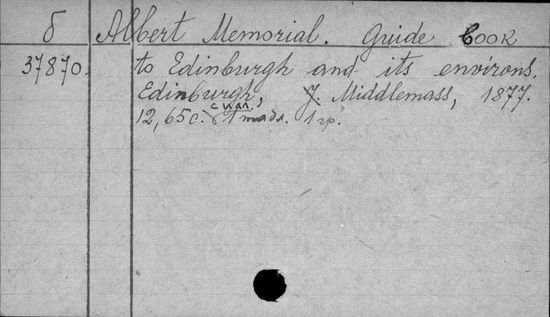 б Albert Memorial. Guide book
37870. to Edinburgh and its environs.
Edinburgh, J. Middlemass, 1877.
12, 65 с. с илл.
1 гр.